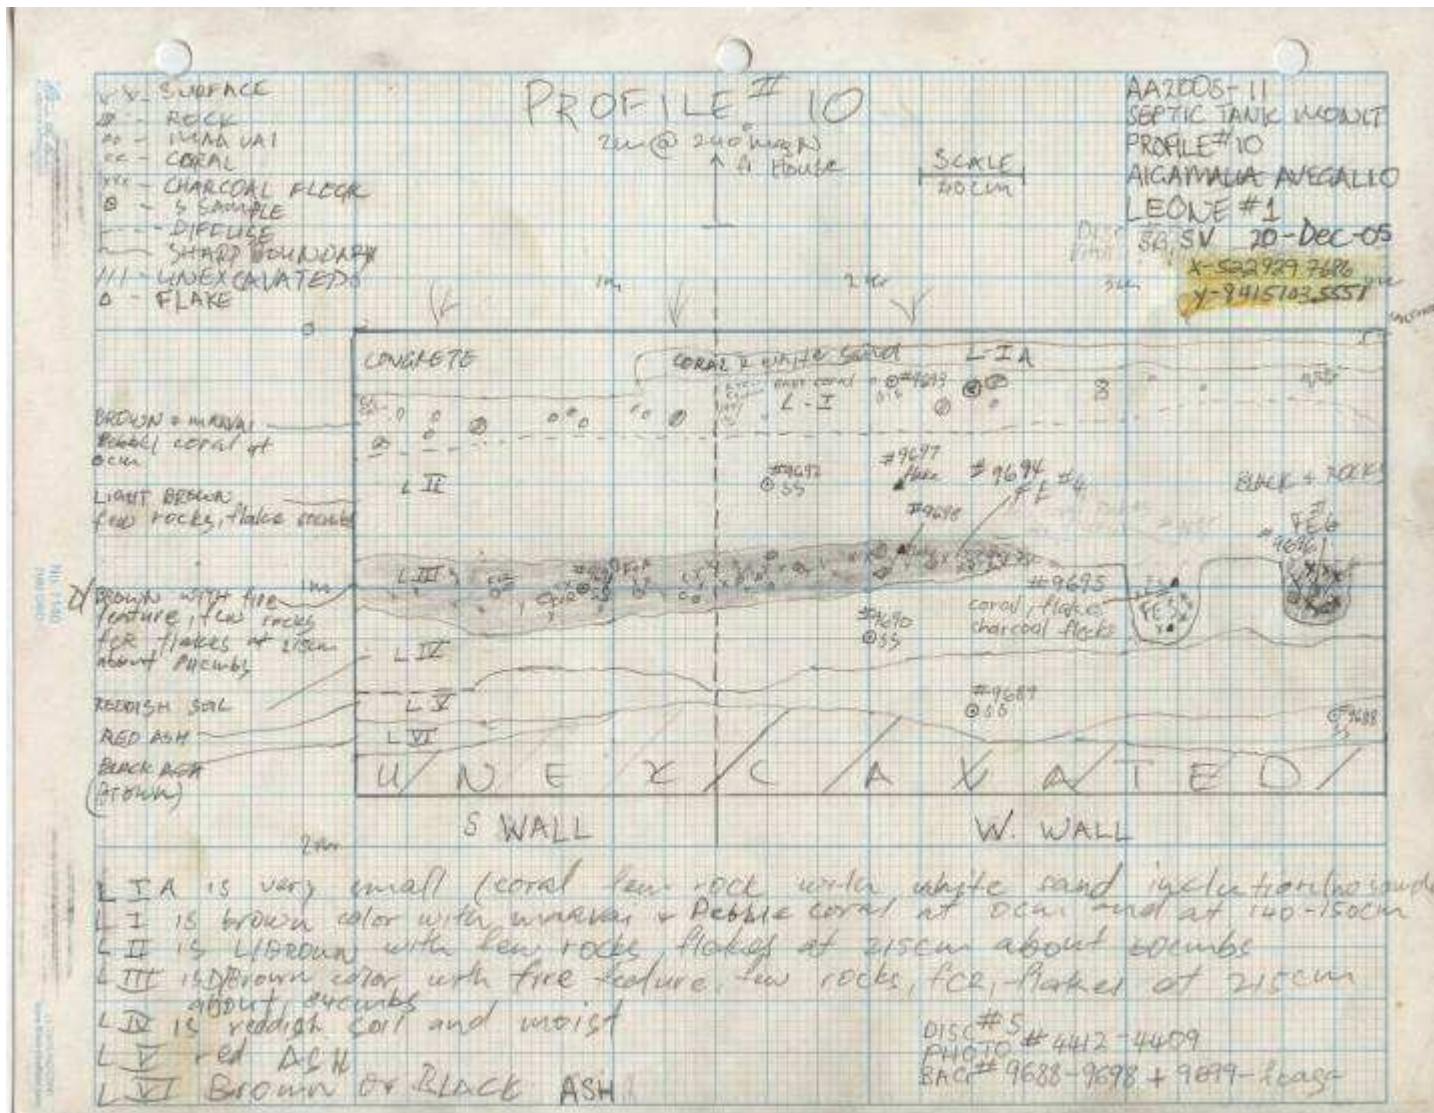 SURFACE
ROCK
CORAL
CHARCOAL FLECK
S SAMPLE
DIFFUSE
SHARP BOUNDARY
/// - UNEXCAVATED
Δ - FLAKE
PROFILE # 10
2m @ 240
House
SCALE
40cm
AA2005-11
SEPTIC TANK MONIT
PROFILE #10
LEONE #1
SV 20-Dec-05
X-522929.7686
y-8415103.5558
0
1m
2m
3m
CONCRETE
CORAL & WHITE SAND
L-IA
#9693
SS
L-I
BROWN
coral at
0cm
L II
#9692
SS
#9697
flake
#9694
FE #4
BLACK + ROCKS
LIGHT BROWN
few rocks, flake
#9698
FE6
#9696
L III
1m
BROWN WITH fire
feature, few rocks
FCR flakes at 215cm
about 84cmbs
#9695
coral, flakes
charcoal flecks
FE5
#9690
SS
L IV
REDDISH SOIL
L V
#9689
SS
#9688
SS
RED ASH
L VI
BLACK ASH
(BROWN)
UNEXCAVATED
S WALL
W. WALL
2m
L I A is very small (coral few rock with white sand
L I is brown color with & Pebble coral at 0cm and at 140-150cm
L II is L/BROWN with few rocks flakes at 215cm about 60cmbs
L III is D/Brown color with fire feature, few rocks, fcr, flakes at 215cm
about 84cmbs
L IV is reddish soil and moist
L V red ASH
L VI Brown or BLACK ASH
DISC #5
PHOTO # 4412-4409
BAG # 9688-9698 + 9699-